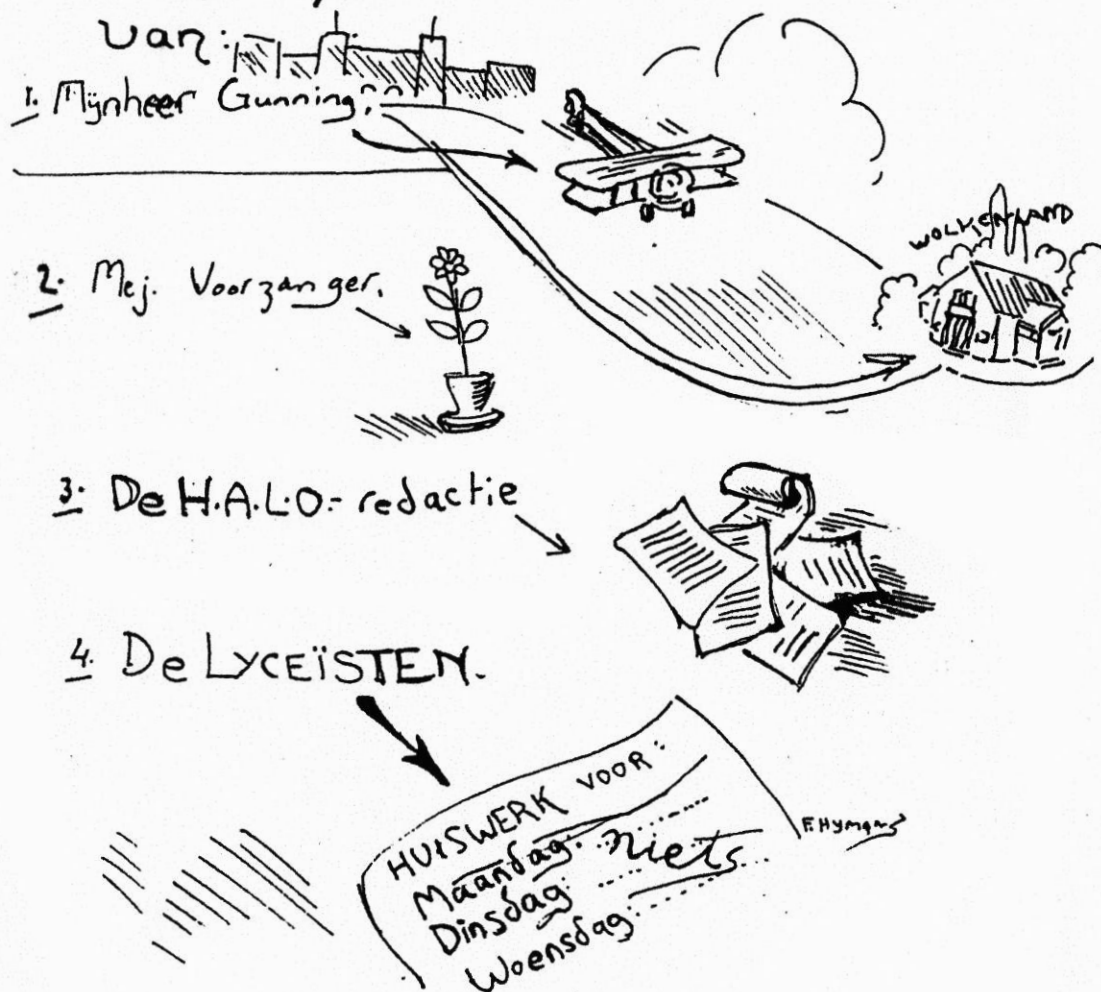 van:
1. Mijnheer Gunning:
WOLKENLAND
2. Mej. Voorzanger.
3. De H.A.L.O.-redactie
4. De LYCEÏSTEN.
HUISWERK VOOR:
Maandag: niets
Dinsdag
Woensdag
F. Hymans